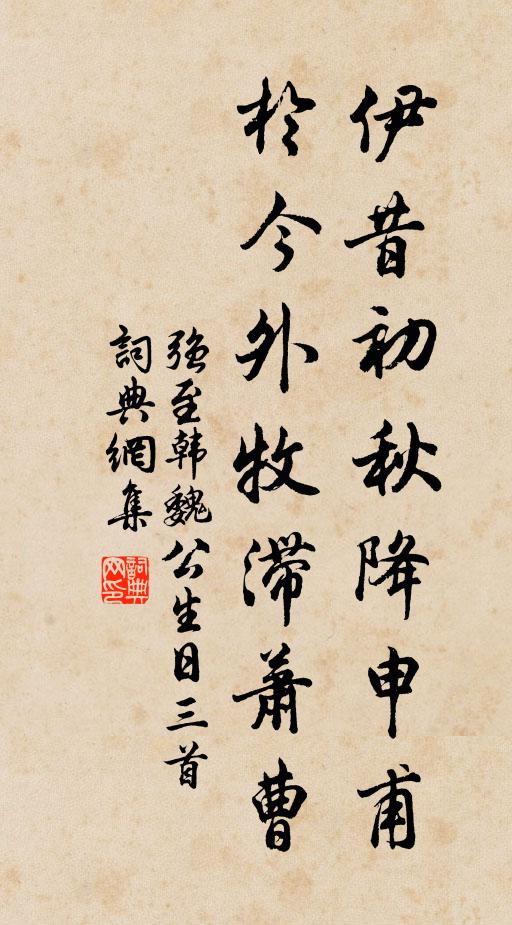 伊昔初秋降申甫
於今外牧滯蕭曹
強至韩魏公生日三首
詞典網集
詞典网印